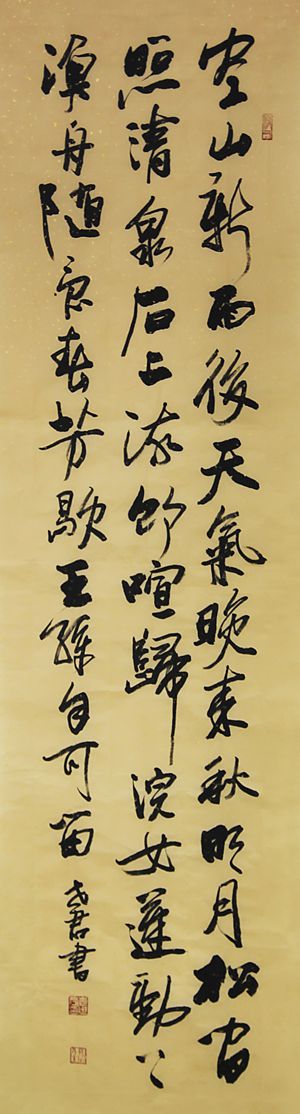 空山新雨後天氣晚来秋明月松間
照清泉石上流竹喧歸浣女蓮動下
漁舟隨意春芳歇王孫自可留 君書